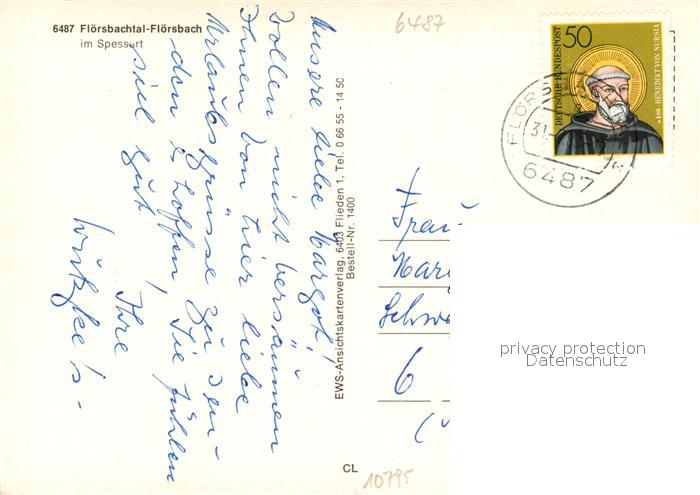 6487 Flörsbachtal-Flörsbach
im Spessart
6487
Unsere liebe Margot!
Wollen nicht versäumen
Ihnen von hier liebe
Urlaubsgrüsse zu sen-
den & hoffen, Sie fühlen
sich gut
Ihre
EWS-Ansichtskartenverlag, 6403 Flieden 1, Tel. 0 66 55 - 14 50
Bestell-Nr. 1400
CL
10795
DEUTSCHE BUNDESPOST
50
*480 · BENEDIKT VON NURSIA
FLÖRS
31.
6487
Frau
6
privacy protection
Datenschutz